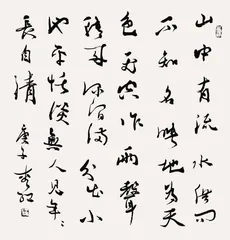 山中有流水借問
不知名映地為天
色飛空作雨聲
轉來深澗滿分出小
池平恬淡無人見年年
長自清 庚子